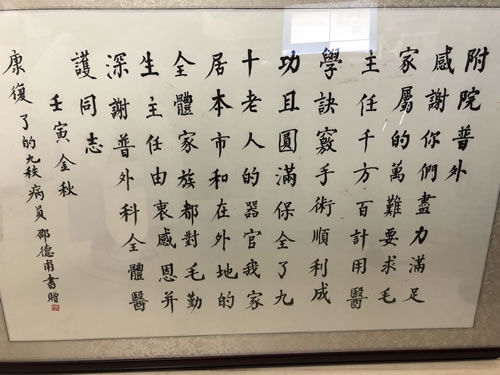 附院普外
感謝你們盡力滿足
家屬的萬難要求毛
主任千方百計用醫
學訣竅手術順利成
功且圓滿保全了九
十老人的器官我家
居本市和在外地的
全體家族都對毛勤
生主任由衷感恩并
深謝普外科全體醫
護同志
壬寅金秋
康復了的九秩病員邵德甫書贈